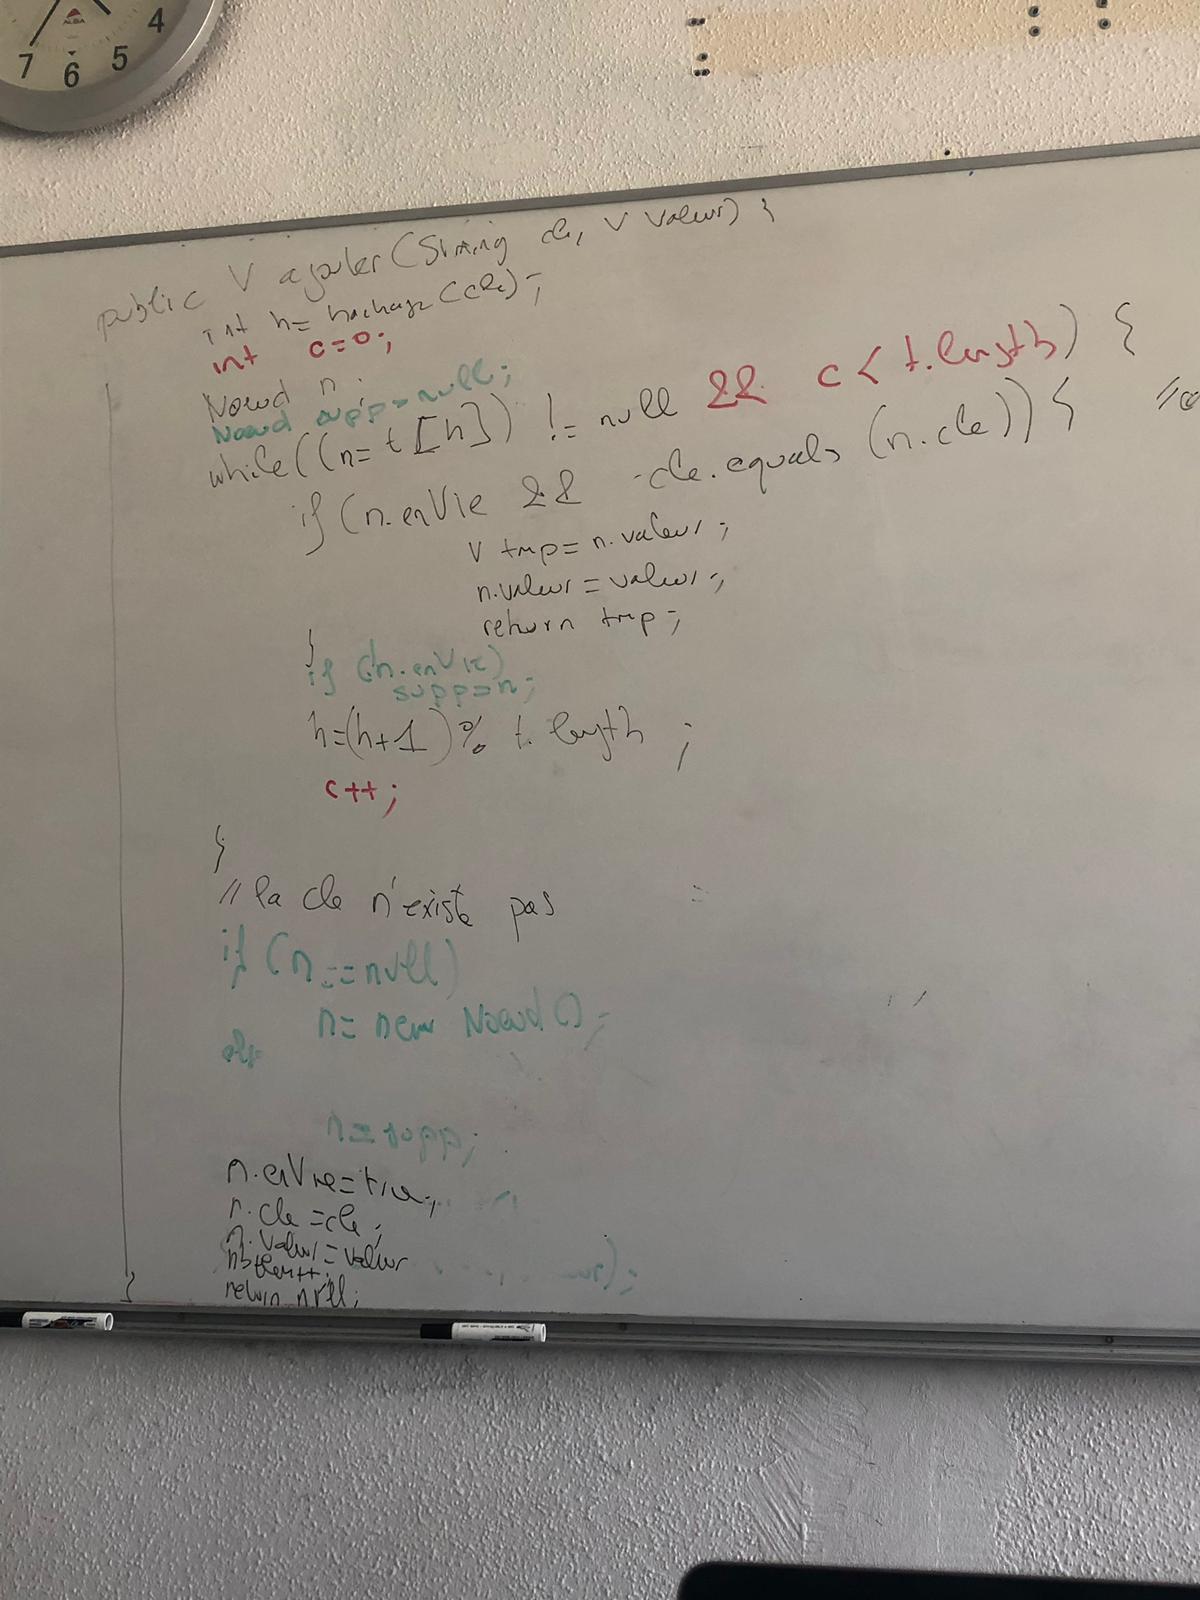 ALBA
4
5
6
7
public V ajouter(String cle, V valeur) {
int h= hachage(cle);
int c=0;
Noeud n;
Noeud supp=null;
while((n= t[h]) != null && c< t.length) {
if (n.enVie && cle.equals (n.cle)) {
//
V tmp= n.valeur;
n.valeur = valeur;
return tmp;
}
if (!n.enVie)
supp=n;
h=(h+1)% t.length ;
c++;
}
// la cle n'existe pas
if (n==null)
n= new Noeud();
else
n=supp;
n.enVie=true;
n.cle =cle;
n.valeur=valeur
return null;
}